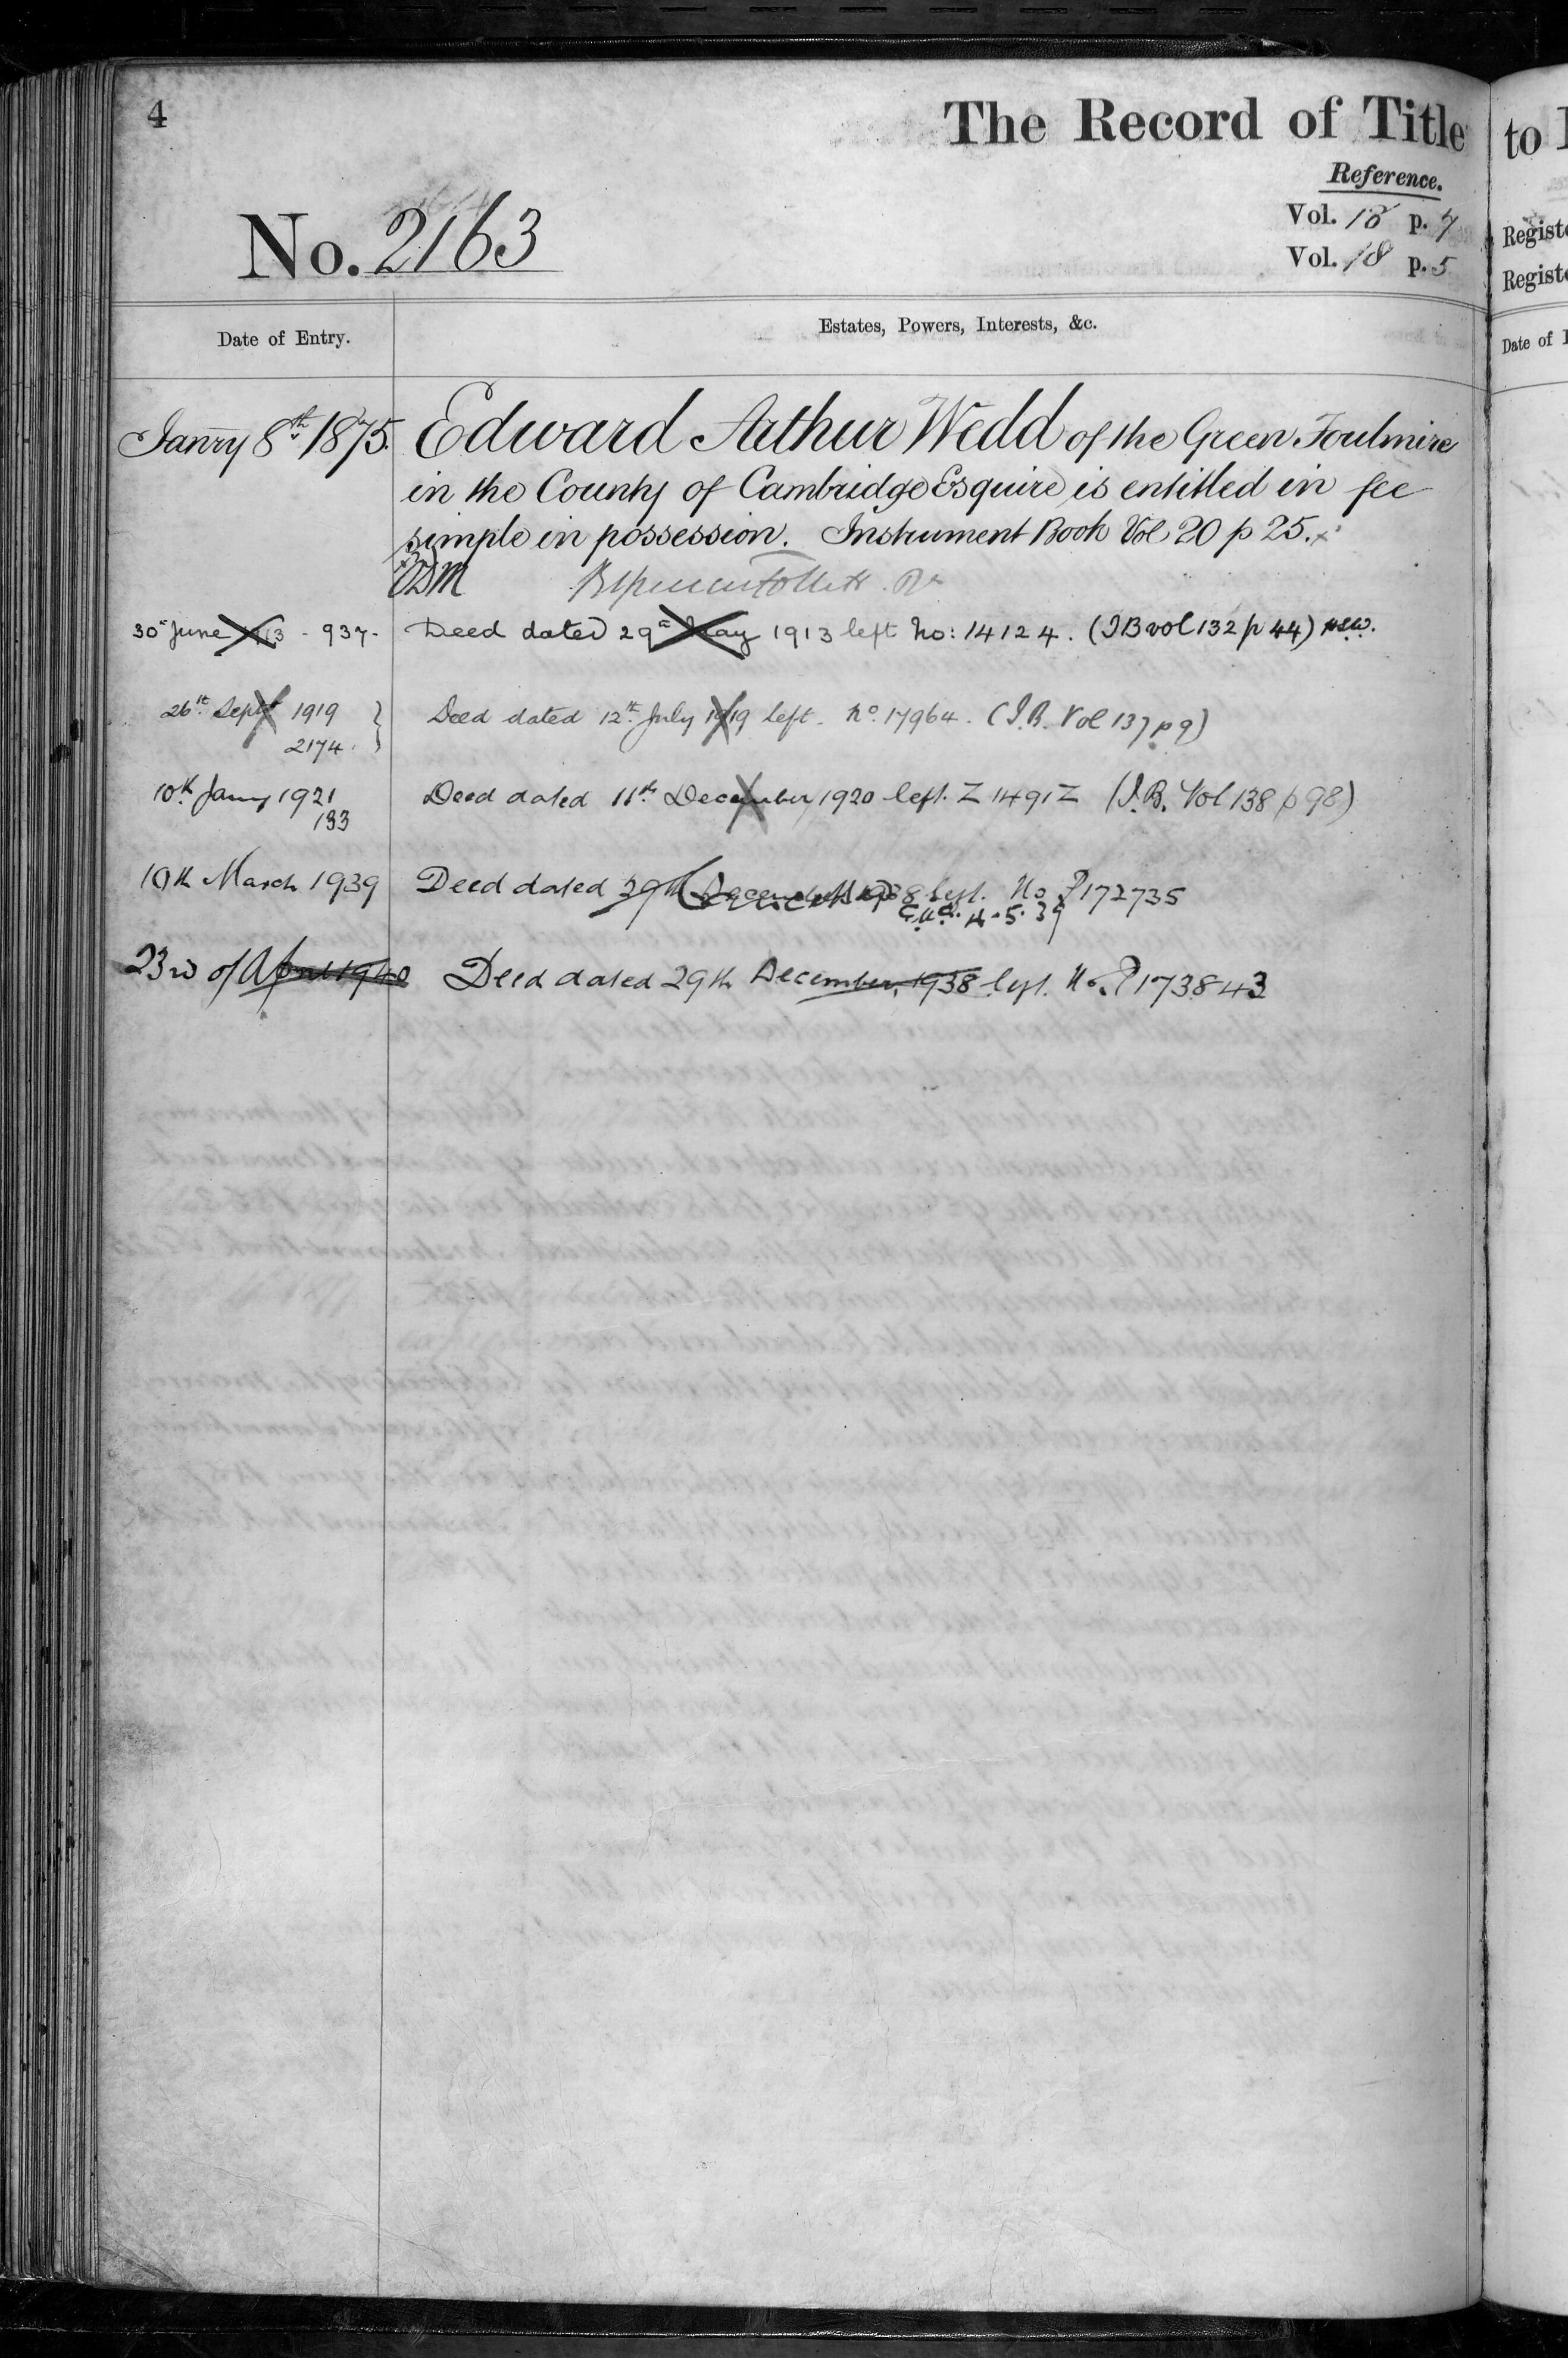 4
The Record of Title
Reference.
Vol. 18 p. 7
Vol. 18 p. 5
No. 2163
Date of Entry.
Estates, Powers, Interests, &c.
Janry 8th 1875.
Edward Arthur Wedd of the Green Foulmire
in the County of Cambridge Esquire is entitled in fee
simple in possession. Instrument Book Vol 20 p 25.
30th June 1913 - 937-
Deed dated 29th May 1913 left No: 14124. (IB vol 132 p 44)
26th Sept 1919
2174
Deed dated 12th July 1919 left. No. 17964. (I.B. Vol 137 p 9)
10th Jany 1921
133
Deed dated 11th December 1920 left. Z 1491Z (I.B. Vol 138 p 98)
10th March 1939
Deed dated 29th December 1938 left. No P172735
4.5.39
23rd of April 1940
Deed dated 29th December, 1938 left. No. P173843
to
Registe
Registe
Date of